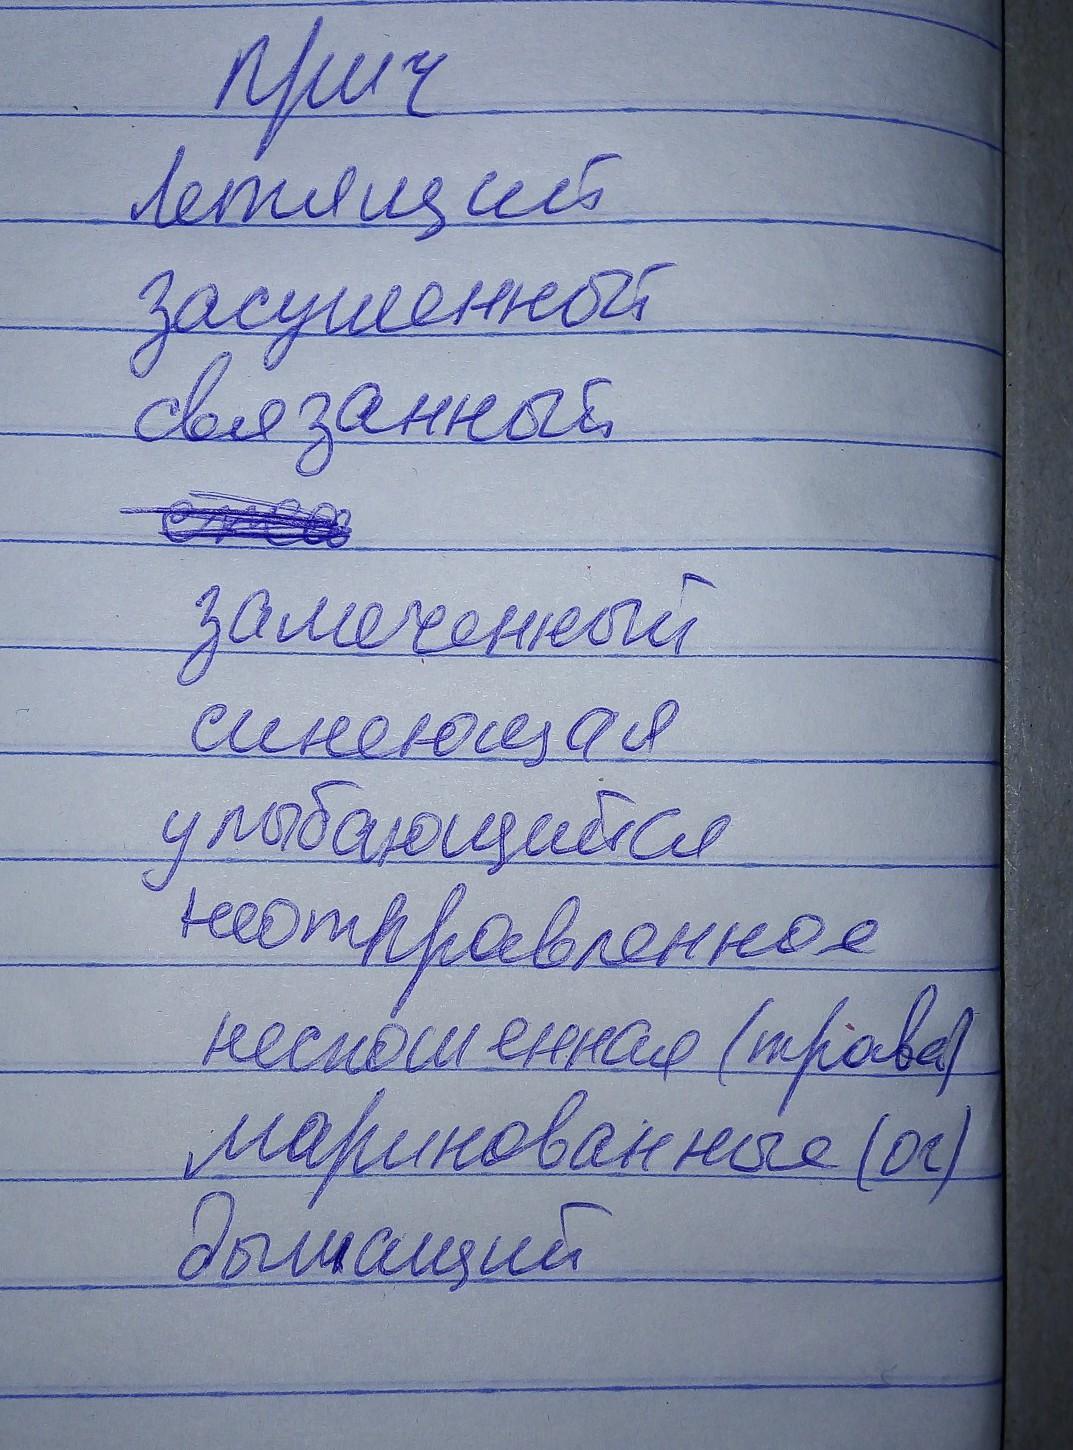 прич
летящий
засушенной
связанный
замеченный
синеющая
улыбающийся
неотправленное
нескошенная (трава)
маринованные (ог)
дышащий